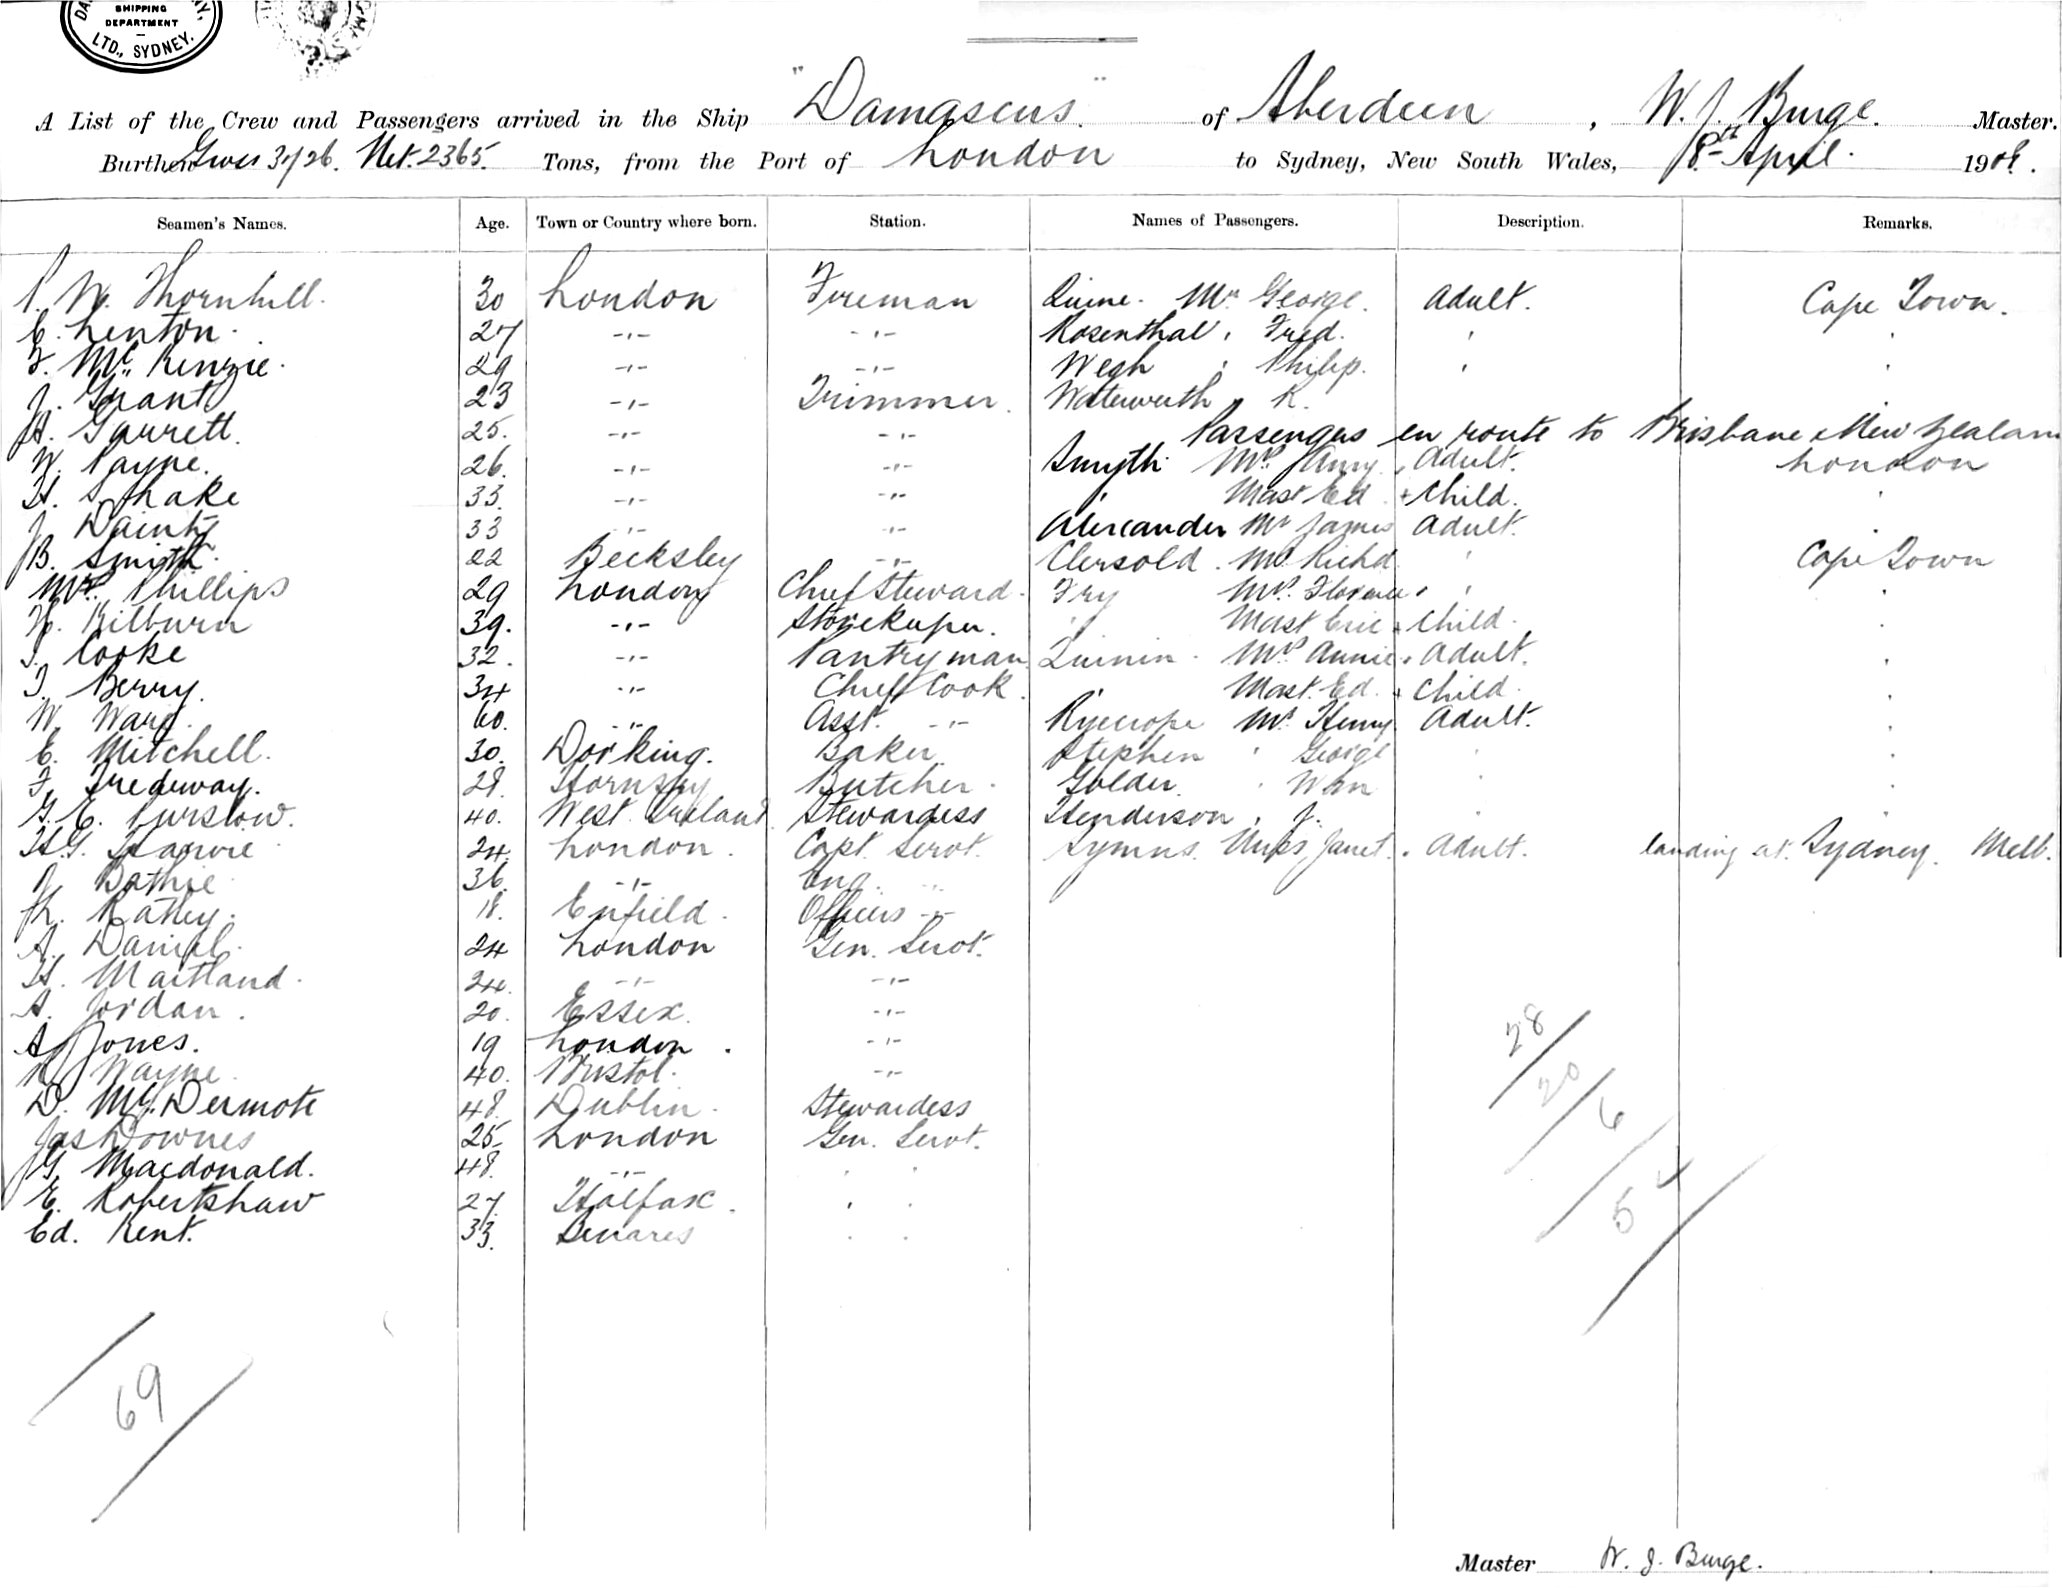 SHIPPING
DEPARTMENT
LTD., SYDNEY.
A List of the Crew and Passengers arrived in the Ship "Damascus" of Aberdeen, W. J. Burge. Master.
Burthen Gross 3726. Net. 2365. Tons, from the Port of London to Sydney, New South Wales, 18th April. 1908.
Seamen's Names. Age. Town or Country where born. Station. Names of Passengers. Description. Remarks.
P. W. Thornhill. 30 London Fireman Quine. Mr George. Adult. Cape Town.
C. Lenton. 27 -"- -"- Rosenthal " Fred. "
F. McKenzie. 29 -"- -"- Wegh " Philip. " "
J. Grant 23 -"- Trimmer. Waterworth " R.
H. Garrett. 25. -"- -"- Passengers en route to Brisbane & New Zealand
W. Payne. 26. -"- -"- Smyth Mrs Amy. Adult. London
H. Shake 33. -"- -"- " Mast Ed + Child. "
J. Dainty 33 -"- -"- Alexander Mr James Adult. "
B. Smith. 22 Becksley -"- Clersold. Mr Richd " Cape Town
Phillips 29 London Chief Steward. Fry Mrs. Florence " "
H. Kilburn 39. -"- Storekeeper. " Mast Eric + Child. "
Cooke 32. -"- Pantryman Quinin. Mrs Annie. Adult. "
Berry. 34 -"- Chief Cook. " Mast. Ed. + Child. "
W. Ward. 60. -"- Asst. -"- Ryecrope Mr. Henry Adult. "
E. Mitchell. 30. Dorking. Baker Stephen " George " "
F. Tredeway. 28. Hornsey Butcher. Golder. " Wm " "
G. E. Purslow. 40. West Ireland Stewardess Henderson, J. " "
24 London. Capt. Servt. Symns. Miss Janet. Adult. landing at Sydney. Melb.
Bathie 36. -"- Eng. "
18. Enfield. Officers -"-
A. Daniel. 24 London Gen. Servt.
H. Maitland. 24. -"- -"-
A. Jordan. 20. Essex. -"-
A. Jones. 19 London. -"-
Wayne 40. Bristol. -"-
D. McDermott 48. Dublin. Stewardess
Jas Downes 25 London Gen. Servt.
G. Macdonald. 48. -"- " "
E. Robertshaw 27. Halfax. " "
Ed. Kent. 33. Benares " "
28
20
6
54
69
Master W. J. Burge.